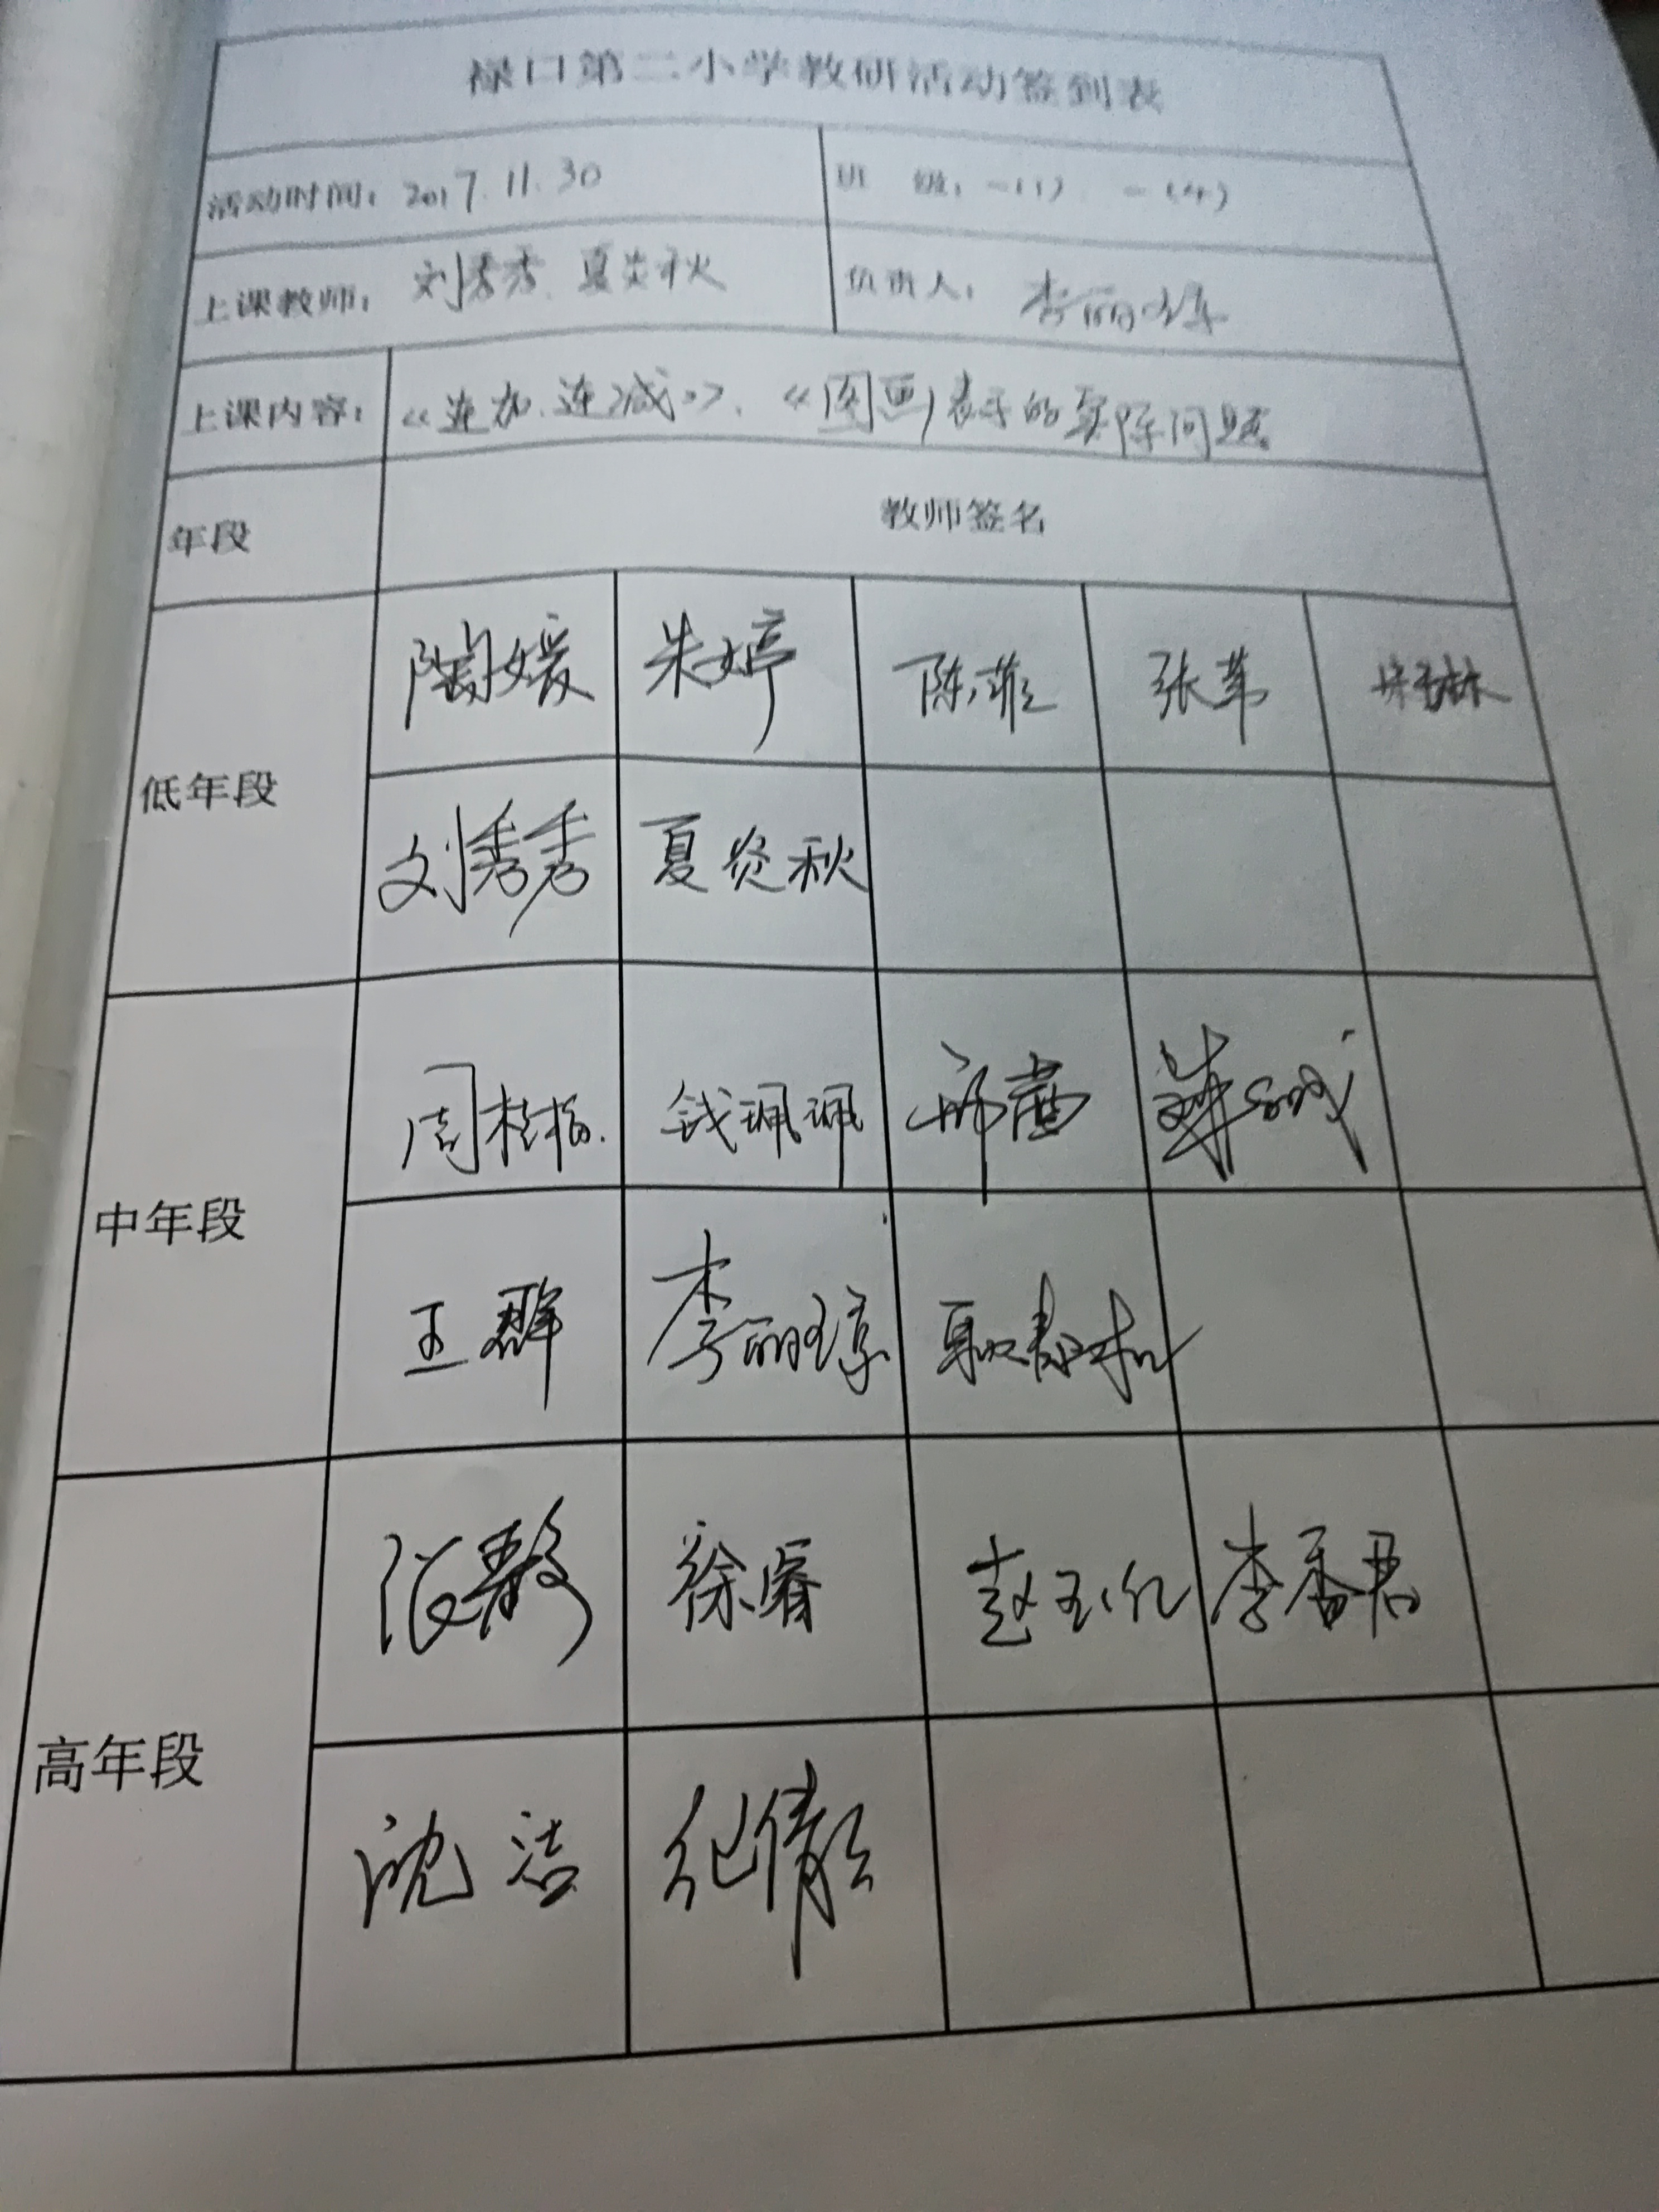 禄口第二小学教研活动签到表
活动时间：2017.11.30 班 级：一(1) 一(4)
上课教师：刘秀秀、夏炎秋 负责人：李丽琼
上课内容：《连加、连减》、《图画表示的实际问题
年段 教师签名
低年段
陶媛 朱婷 陈菲 张苇
刘秀秀 夏炎秋
中年段
周桂梅 钱珮珮
王群 李丽琼
高年段
徐睿 赵玉红 李香君
沈洁 纪倩